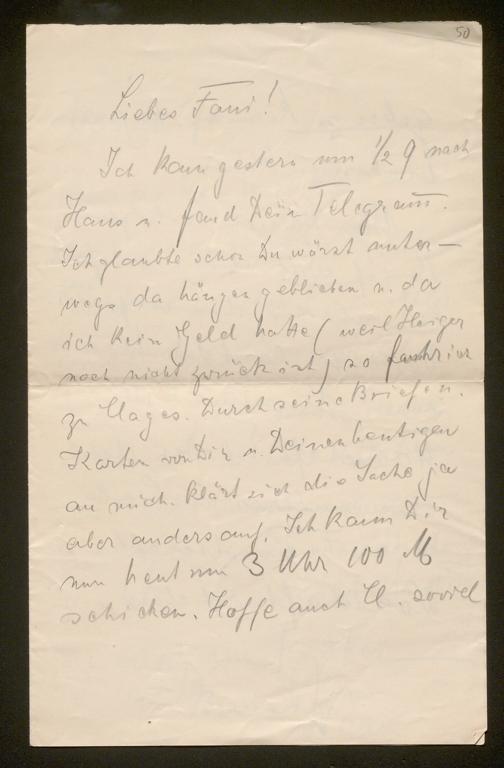 50
Liebes Fani!
Ich kam gestern um 1/2 9 nach
Haus u. fand Dein Telegramm.
Ich glaubte schon Du wärst unter-
wegs da hängen geblieben u. da
ich kein Geld hatte (weil Heiger
noch nicht zurück ist) so fuhr ich
zu Klages. Durch seine Briefe u.
Karten von Dir u. Deinen heutigen
an mich klärt sich die Sache ja
aber anders auf. Ich kann Dir
nun heut um 3 Uhr 100 M
schicken. Hoffe auch Kl. soviel